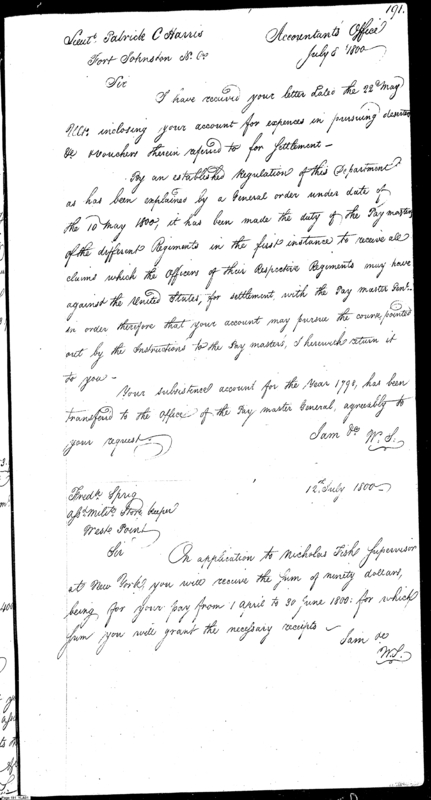 191.
Lieut. Patrick C Harris
Accountants Office
Fort Johnston N. Ca
July 8 1800
Sir
I have received your letter dated the 22d May
inclosing your account for expences in pursuing deserters
& vouchers therein referred to for settlement -
By an established Regulation of this Department
as has been explained by a General order under date of
the 10 May 1800, it has been made the duty of the Paymasters
of the different Regiments in the first instance to receive all
claims which the Officers of their Respective Regiments may have
against the United States, for settlement, with the Pay master Genl.
in order therefore that your account may pursue the course, pointed
out by the Instructions to the Pay masters, I herewith return it
to you -
Your subsistence account for the Year 1798, has been
transferd to the office of the Pay master General, agreeably to
your request.
I am &c
W. S.
12th July 1800
Fredk. Sprig
asst. mility. Store keeper
West Point
Sir
On application to Nicholas Fish Supervisor
at New York, you will receive the sum of ninety dollars,
being for your pay from 1 april to 30 June 1800: for which
sum you will grant the necessary receipts -
I am &c
W.S.